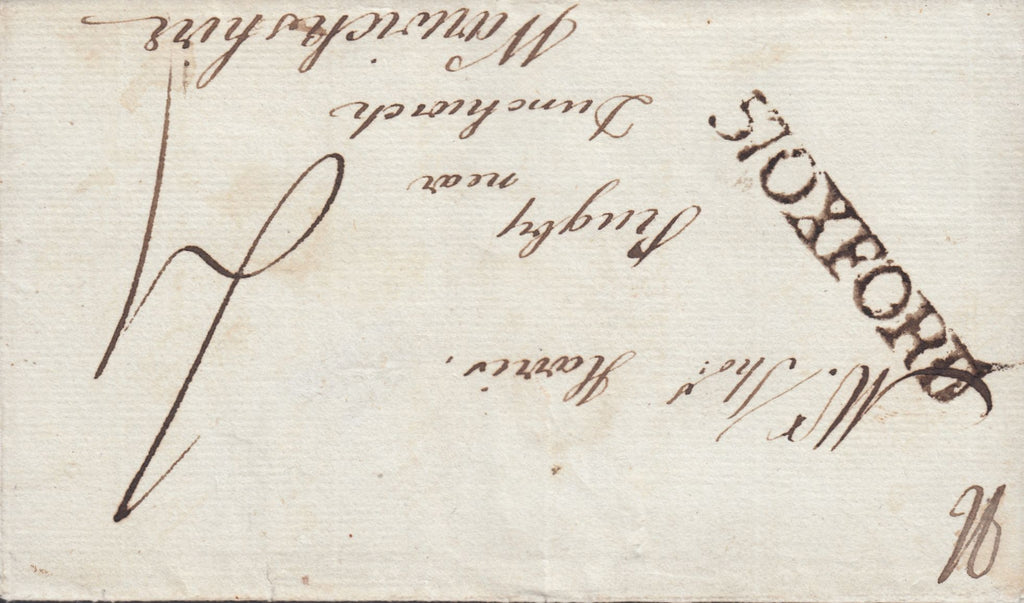 Mr. Thos. Harris,
Rugby
near
Dunchurch
Warwickshire
57OXFORD